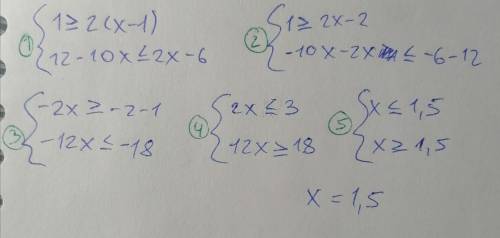 ① { 1 ≥ 2(x-1)
12-10x ≤ 2x-6
② { 1 ≥ 2x-2
-10x-2x ≤ -6-12
③ { -2x ≥ -2-1
-12x ≤ -18
④ { 2x ≤ 3
12x ≥ 18
⑤ { x ≤ 1,5
x ≥ 1,5
x = 1,5